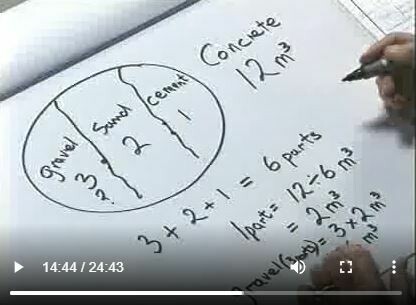 Concrete
12 m³
gravel
3
?
sand
2
cement
1
3 + 2 + 1 = 6 parts
1 part = 12 ÷ 6 m³
= 2 m³
= 3 × 2 m³
m³
14:44 / 24:43